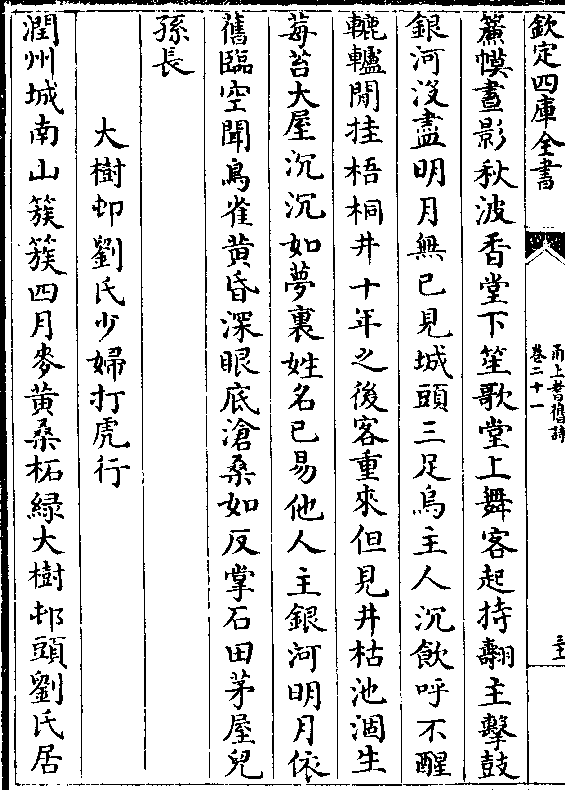 欽定四庫全書
甬上耆舊詩
卷二十一
簾幙晝影秋波香堂下笙歌堂上舞客起持翿主擊鼓
銀河没盡明月無已見城頭三足烏主人沉飲呼不醒
轆轤閒挂梧桐井十年之後客重來但見井枯池涸生
莓苔大屋沉沉如夢裏姓名已易他人主銀河明月依
舊臨空聞鳥雀黄昏深眼底滄桑如反掌石田茅屋兒
孫長
大樹邨劉氏少婦打虎行
潤州城南山簇簇四月麥黄桑柘緑大樹邨頭劉氏居